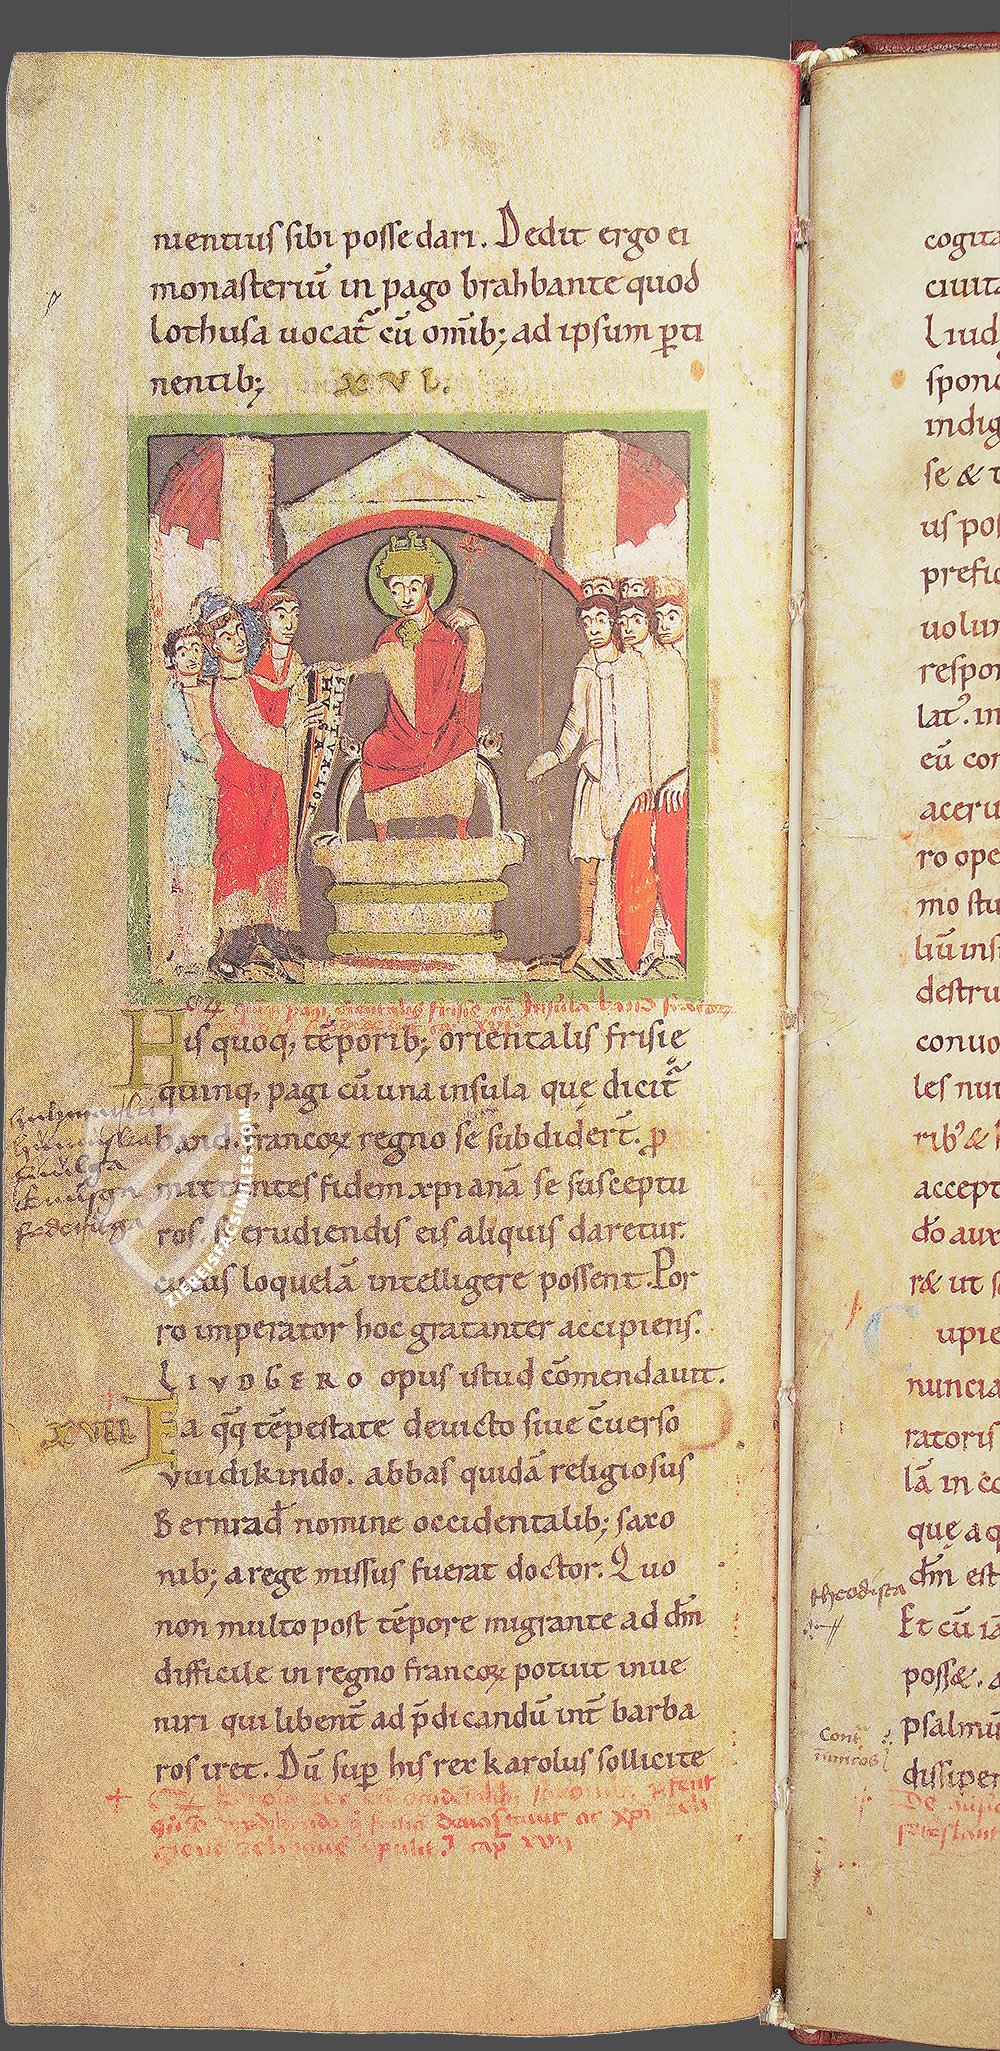 nientius sibi posse dari. Dedit ergo ei
monasteriū in pago brahbante quod
Lothusa uocat̃ cū om̄ib; ad ipsum ꝑti
nentib;
XVI.
SIT TVA LOT
HVSA
His quoq; tēporib; orientalis frisię
quinq; pagi cū una insula quę dicit̃
band. francoꝝ regno se subdider̄t. ꝓ
mittentes fidem xp̄ianā se susceptu
ros. si erudiendis eis aliquis daretur.
cuius loquelā intelligere possent. Por
ro imperator hoc gratanter accipiens.
LIVDGERO opus istud cōmendauit.
XVII.
Ea q̄q; tēpestate deuicto siue c̄uerso
vuidikindo. abbas quidā religiosus
Bernrad̄ nomine occidentalib; saxo
nib; a rege missus fuerat doctor. Quo
non multo post tēpore migrante ad dn̄m
difficile in regno francoꝝ potuit inue
niri qui libent̄ ad p̄dicandū int̄ barba
ros iret. Dū suꝑ his rex karolus sollicite
cap̄ XVII
cogita
ciuita
Liud
spond
indig
se & t
us pos
prefic
uolun
respon
lat᷒. in
eū con
aceru
ro ope
mo stu
liū inst
destru
conuo
les nun
rib᷒ &
accept
do aux
r& ut s
Cupie
nuncia
ratoris
lā in co
quę a q
dn̄m est
theodista
Et cū iā
poss&. a
psalmū
dissiper
ZIEREISFACSIMILES.COM